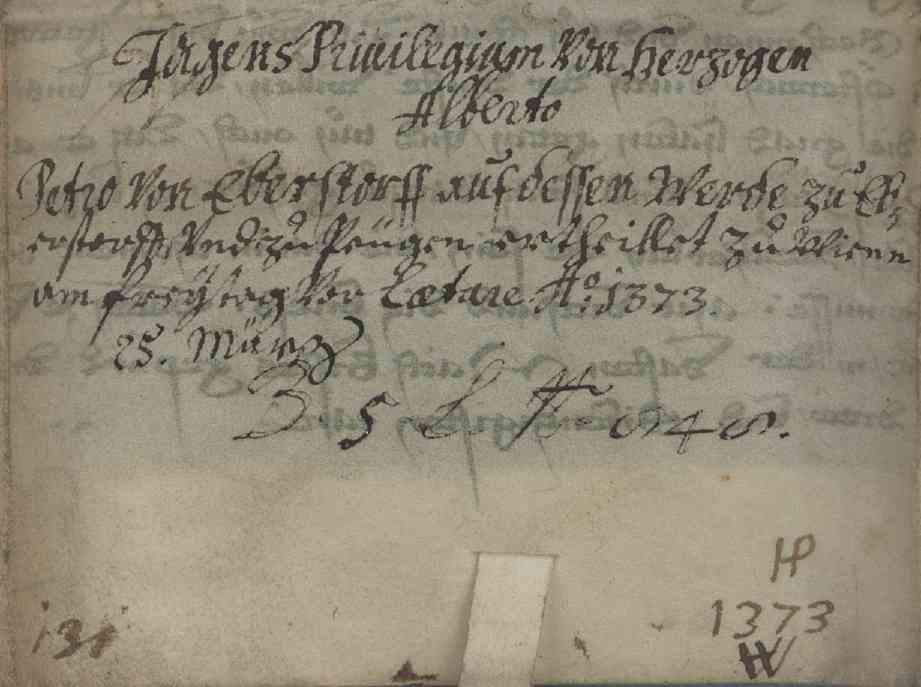 Jagens Privilegium Von Herzogen
Alberto
Petro Von Eberstorff auf dessen Werde zu Eb,
erstorff, Und zu Peügen ertheillet zu Wienn
am freÿtag Vor Lætare Aº: 1373.
25. März
5
HP
1373
W
131